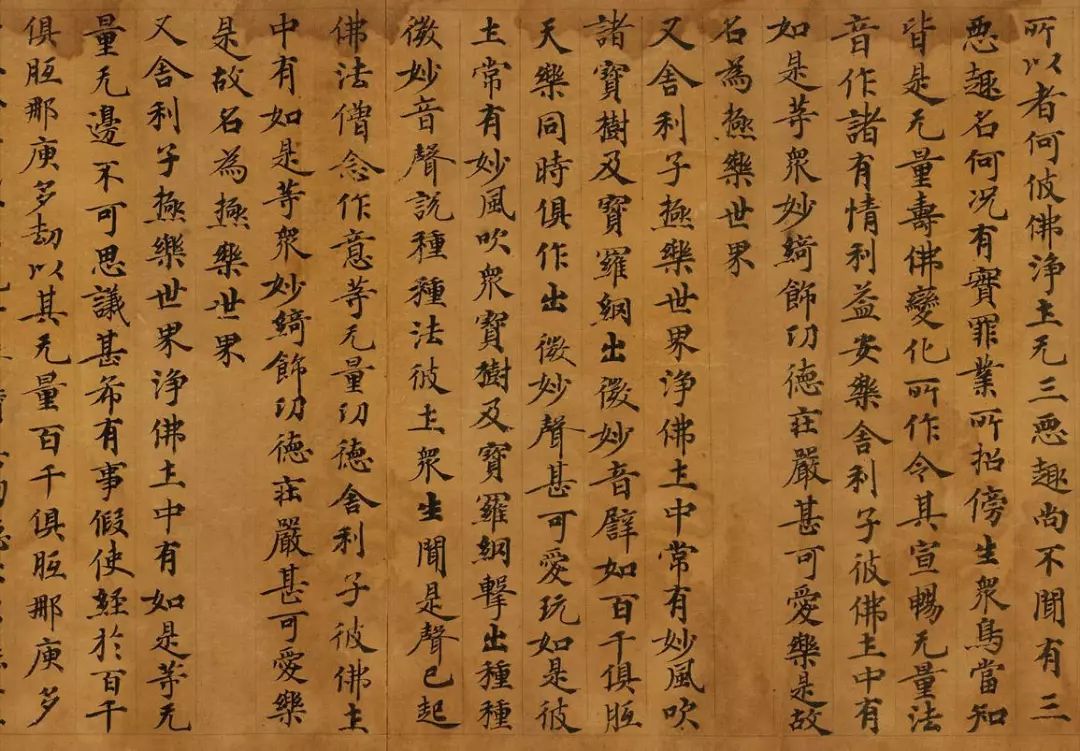 所以者何彼佛浄土无三惡趣尚不聞有三
惡趣名何况有實罪業所招傍生衆鳥當知
皆是无量壽佛變化所作令其宣暢无量法
音作諸有情利益安樂舍利子彼佛土中有
如是等衆妙綺飾功德莊嚴甚可愛樂是故
名為極樂世界
又舍利子極樂世界浄佛土中常有妙風吹
諸寶樹及寶羅網出微妙音譬如百千俱胝
天樂同時俱作出微妙聲甚可愛玩如是彼
土常有妙風吹衆寶樹及寶羅網擊出種種
微妙音聲說種種法彼土衆生聞是聲已起
佛法僧念作意等无量功德舍利子彼佛土
中有如是等衆妙綺飾功德莊嚴甚可愛樂
是故名為極樂世界
又舍利子極樂世界浄佛土中有如是等无
量无邊不可思議甚希有事假使經於百千
俱胝那庾多劫以其无量百千俱胝那庾多